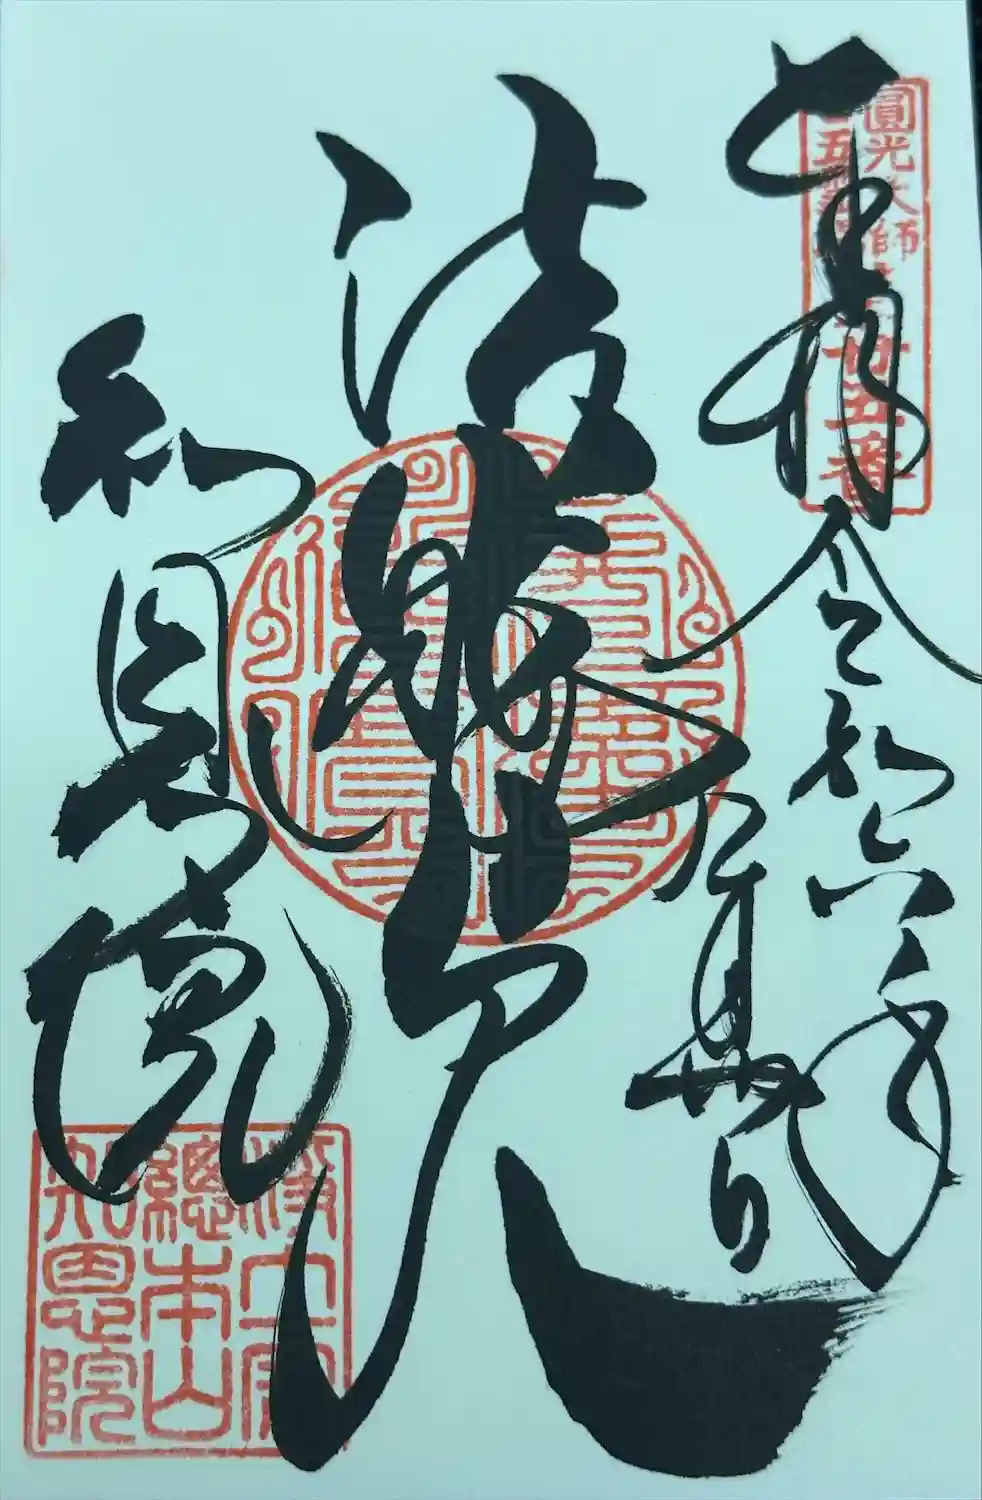 圓光大師
廿五番
奉拝 令和六年
法然上人
知恩院
浄土宗
總本山
知恩院